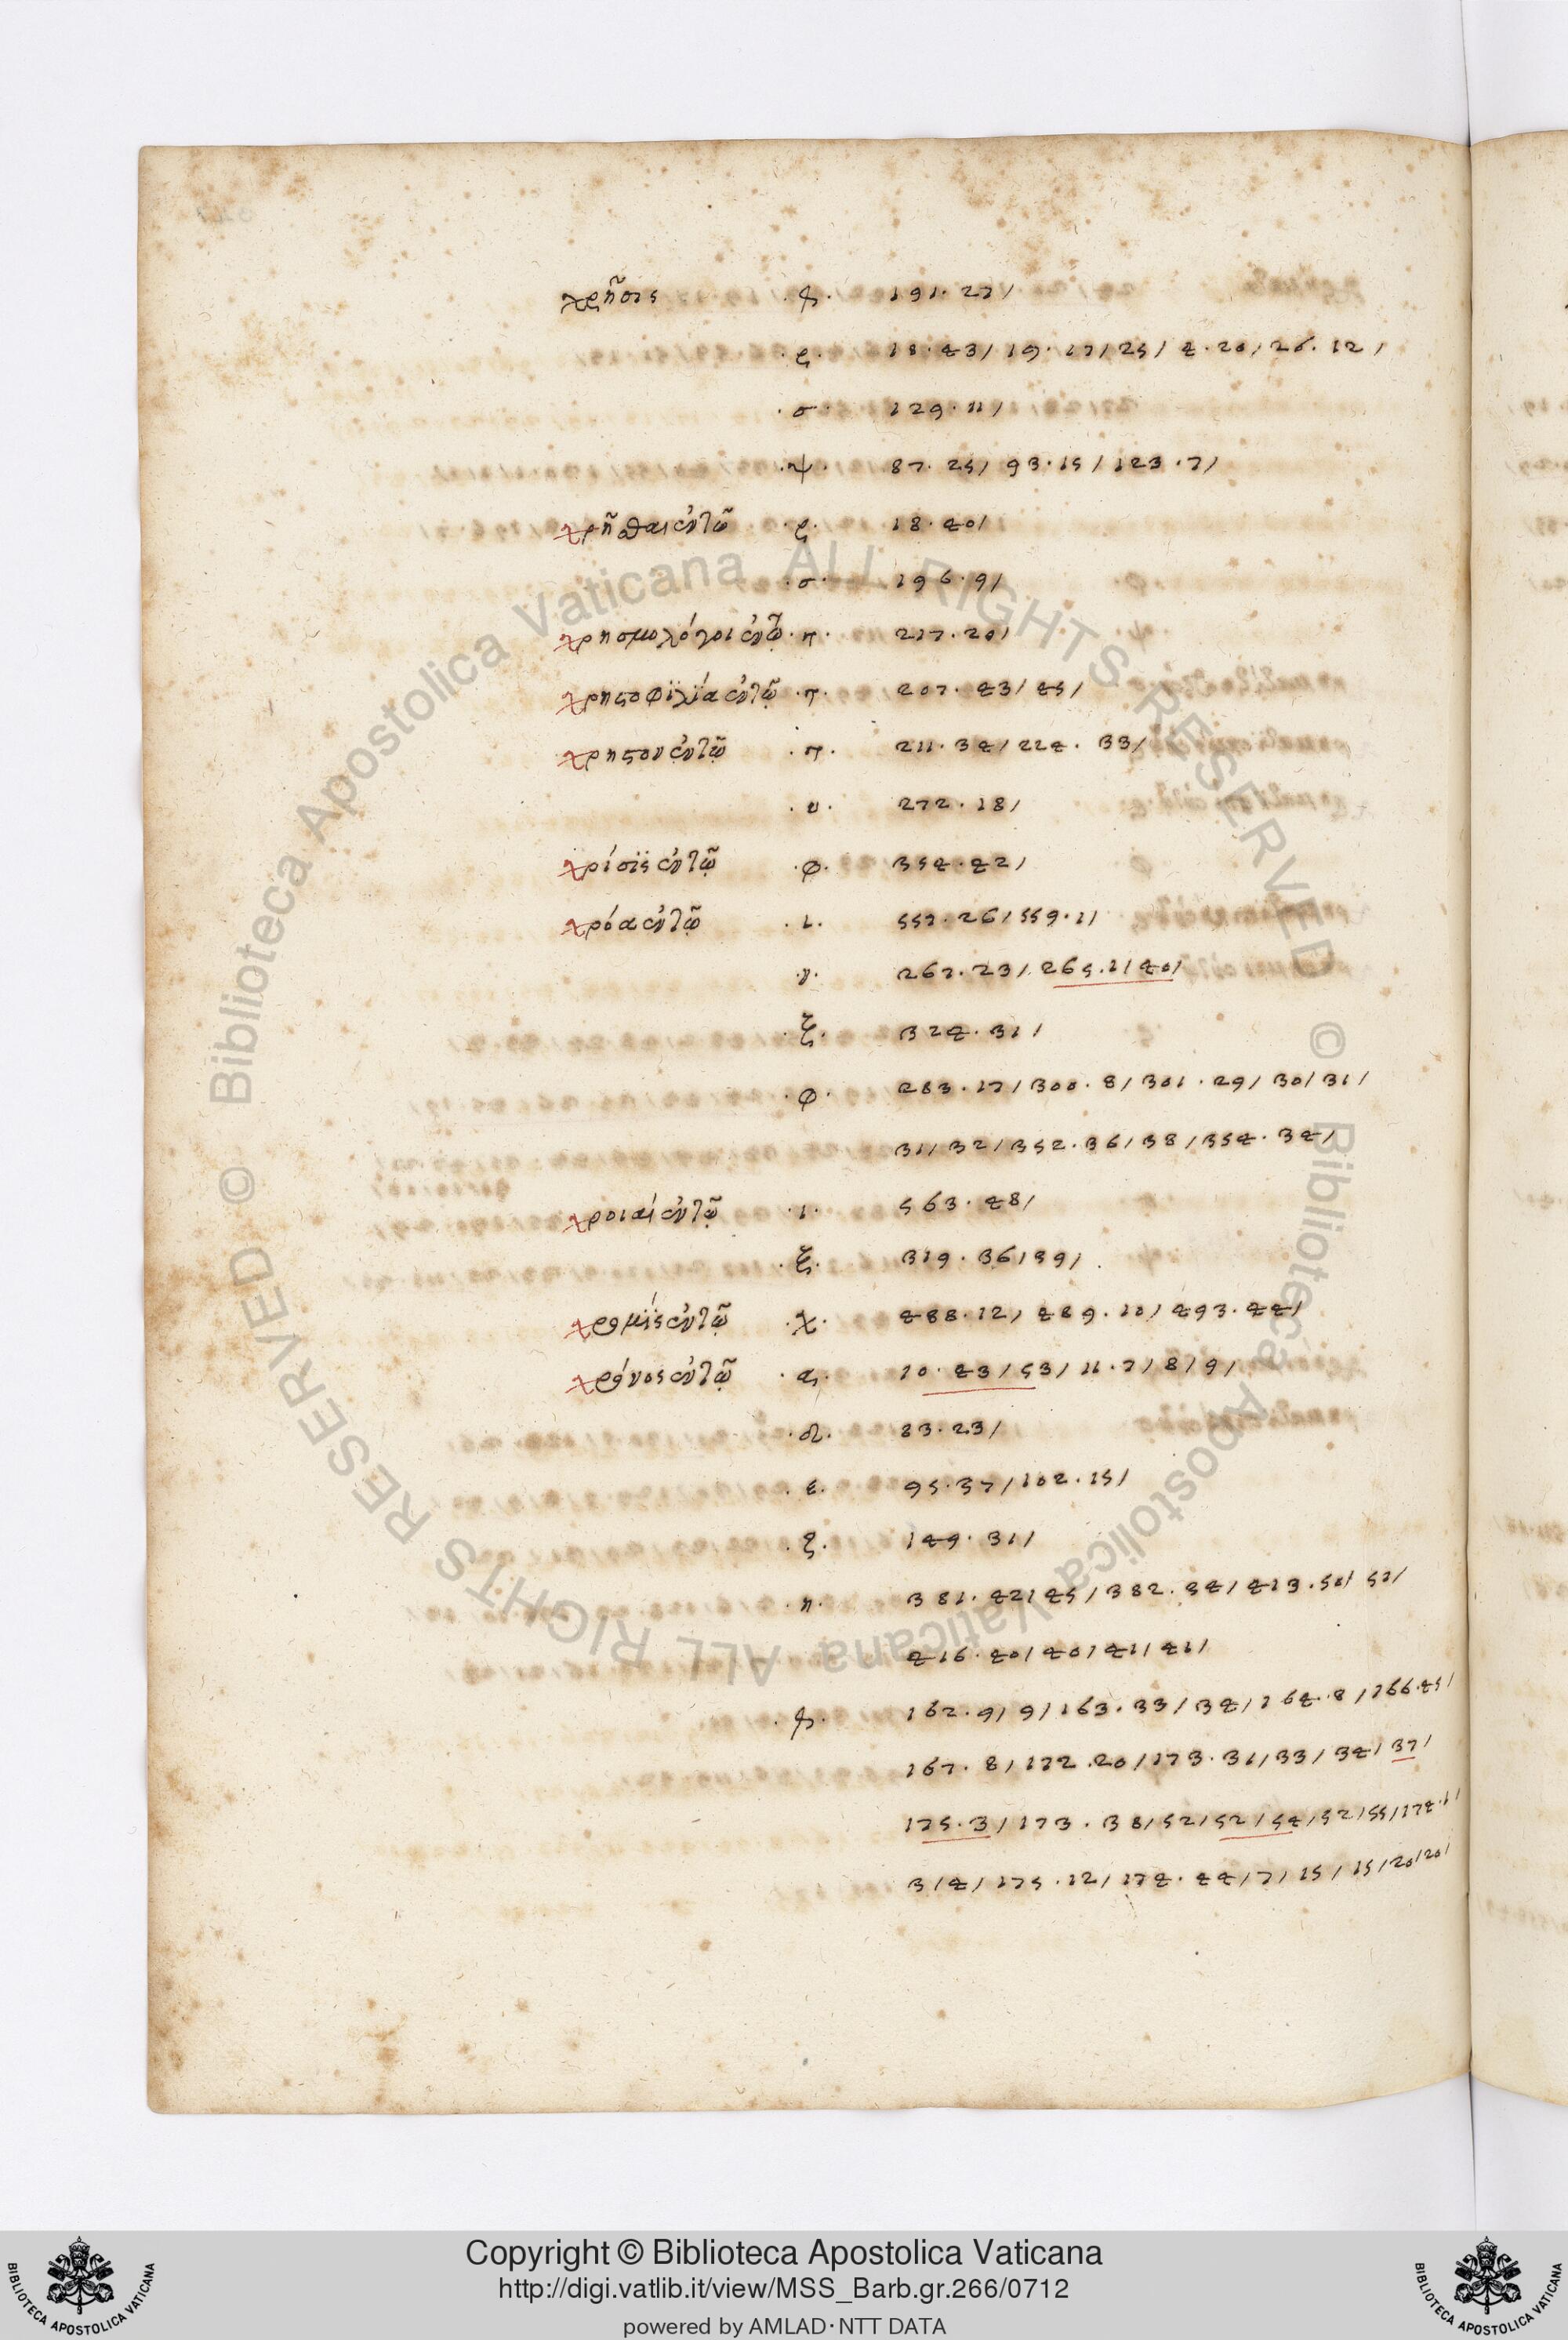 χρῆσις ·ϙ· 191·27/
·ϛ· 18·43/ 19·17/25/ 4·20/ 26·12/
·σ· 129·11/
·ψ· 87·25/ 93·15/ 123·7/
χρῆσθαι ἐν τῶ ·ϛ· 18·40/
·σ· 196·9/
χρησμολόγοι ἐν τῶ ·π· 217·20/
χρηστοφϊλΐα ἐν τῶ ·π· 207·43/45/
χρηστον ἐν τῶ ·π· 211·34/224·33/
·υ· 272·18/
χρίσϊς ἐν τῶ ·φ· 354·42/
χρόα ἐν τῶ ·ι· 557·26/559·1/
·ν· 267·23/265·1/40/
·ξ· 324·31/
·φ· 283·17/300·8/301·29/30/31/
31/32/352·36/38/354·34/
χροιαί ἐν τῶ ·ι· 563·48/
·ξ· 319·36/39/
χρομΐς ἐν τῶ ·χ· 488·12/489·10/493·44/
χρόνος ἐν τῶ ·α· 10·43/53/11·7/8/9/
·δ· 83·23/
·ε· 95·37/102·15/
·ζ· 149·31/
·η· 381·42/45/382·34/413·50/51/
416·40/40/41/41/
·ϙ· 162·9/9/163·33/34/164·8/166·45/
167·8/172·20/173·31/33/34/37/
175·3/173·38/52/52/54/52/55/174·1/
3/4/175·12/174·44/7/15/15/20/20/
Copyright © Biblioteca Apostolica Vaticana
http://digi.vatlib.it/view/MSS_Barb.gr.266/0712
powered by AMLAD·NTT DATA